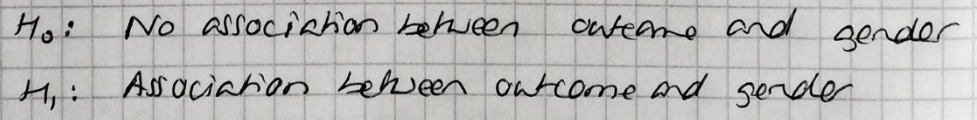 H₀: No association between outcome and gender
H₁: Association between outcome and gender